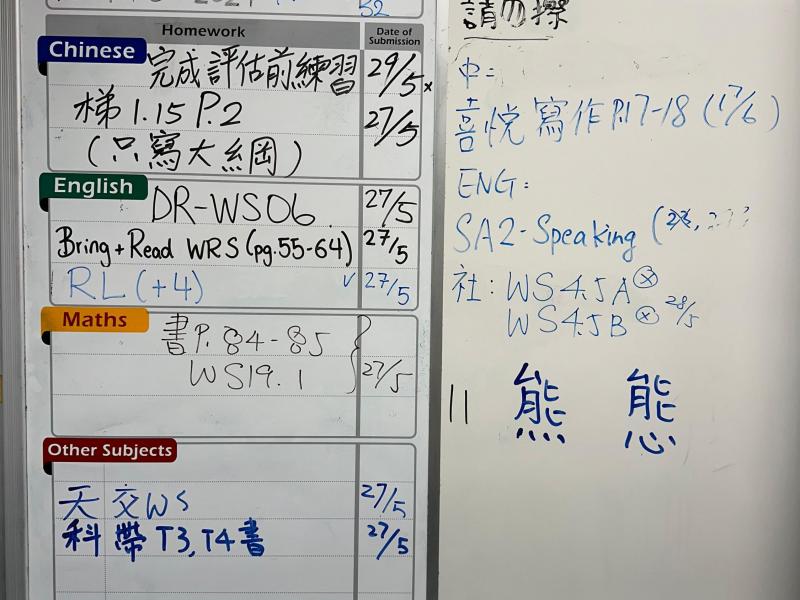 Homework
Date of Submission
Chinese
完成評估前練習 29/5
梯1.15 P.2 27/5
(只寫大綱)
English
DR-WS06 27/5
Bring + Read WRS (pg.55-64) 27/5
RL (+4) √ 27/5
Maths
書P. 84-85
WS19.1 27/5
Other Subjects
天 交WS 27/5
科 帶 T3, T4書 27/5
請勿擦
中:
喜悅寫作P.17-18 (17/6)
ENG:
SA2-Speaking (
社: WS 4.5A
WS 4.5B 28/5
熊 態